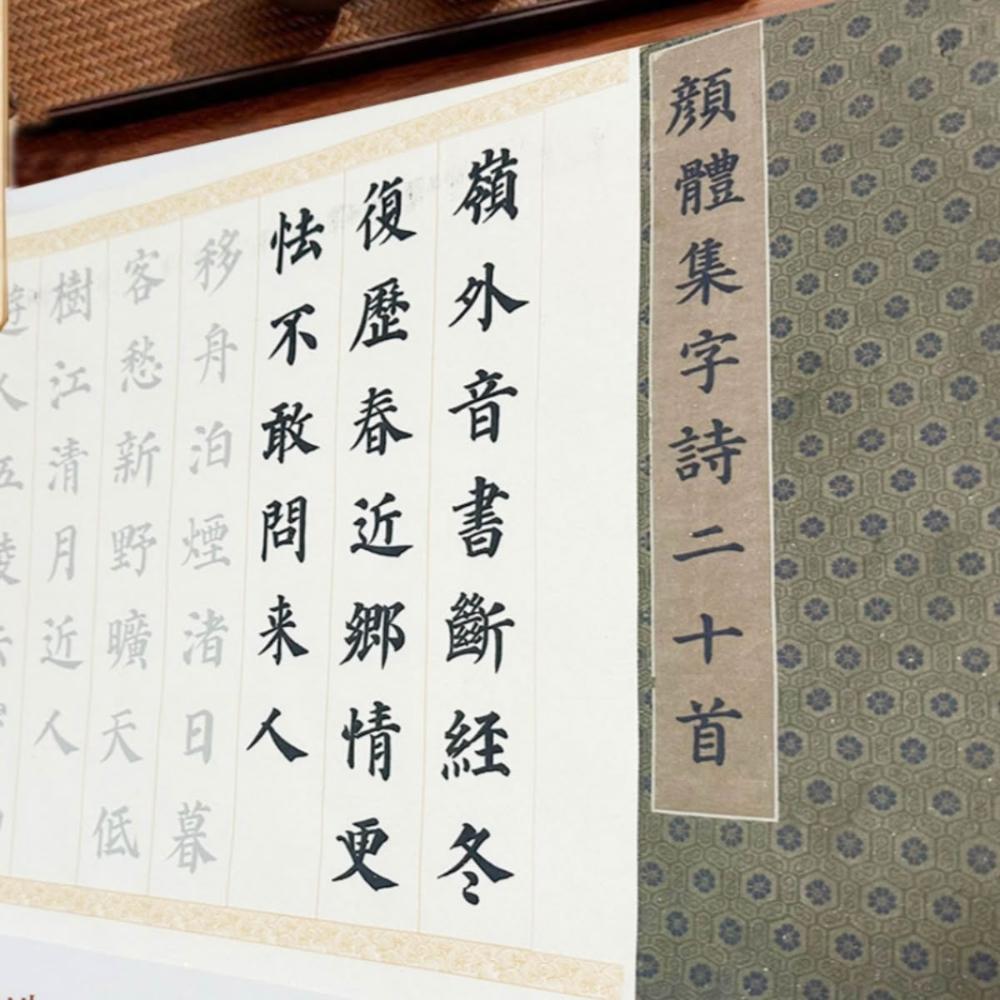 顔體集字詩二十首
嶺外音書斷經冬
復歷春近鄉情更
怯不敢問来人
移舟泊煙渚日暮
客愁新野曠天低
樹江清月近人